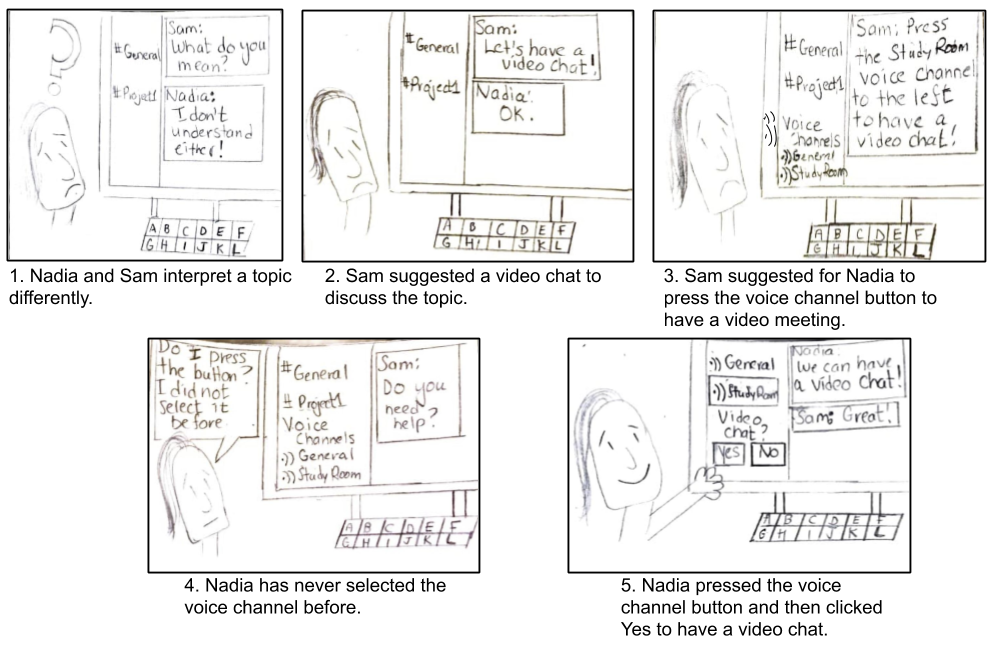 ?
#General
#Project1
Sam:
What do you
mean?
Nadia:
I don't
understand
either!
A B C D E F
G H I J K L
1. Nadia and Sam interpret a topic
differently.
#General
#Project1
Sam:
Let's have a
video chat!
Nadia:
OK.
A B C D E F
G H I J K L
2. Sam suggested a video chat to
discuss the topic.
#General
#Project1
Voice
Channels
General
StudyRoom
Sam: Press
the Study Room
voice channel
to the left
to have a
video chat!
A B C D E F
G H I J K L
3. Sam suggested for Nadia to
press the voice channel button to
have a video meeting.
Do I press
the button?
I did not
select it
before
#General
# Project1
Voice
Channels
General
Study Room
Sam:
Do you
need
help?
A B C D E F
G H I J K L
4. Nadia has never selected the
voice channel before.
General
StudyRoom
Video
chat?
Yes No
Nadia:
We can have
a video chat!
Sam: Great!
A B C D E F
G H I J K L
5. Nadia pressed the voice
channel button and then clicked
Yes to have a video chat.